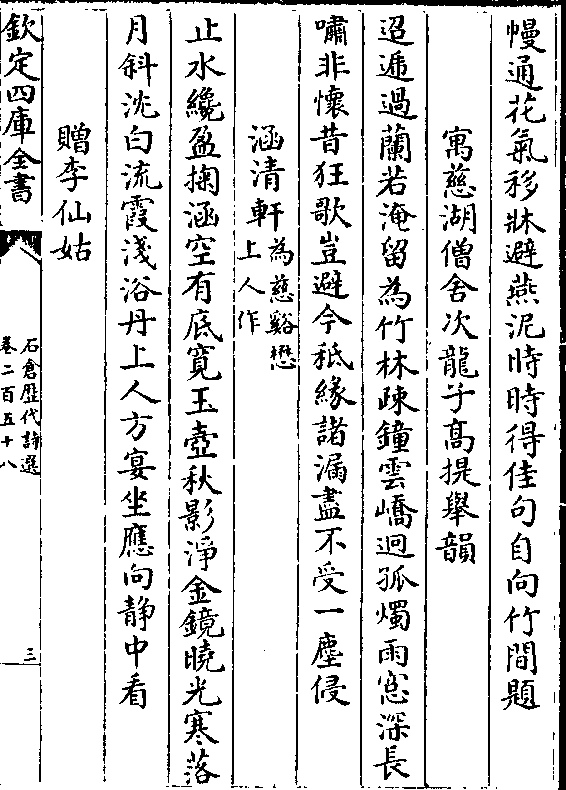 幔通花氣移牀避燕泥時時得佳句自向竹間題
寓慈湖僧舍次龍子髙提舉韻
迢遞過蘭若淹留為竹林疎鐘雲嶠迥孤燭雨窓深長
嘯非懷昔狂歌豈避今秪緣諸漏盡不受一塵侵
涵清軒為慈谿懋上人作
止水纔盈掬涵空有底寛玉壺秋影淨金鏡曉光寒落
月斜沈白流霞淺浴丹上人方宴坐應向静中看
贈李仙姑
欽定四庫全書
石倉歴代詩選
卷二百五十八
三